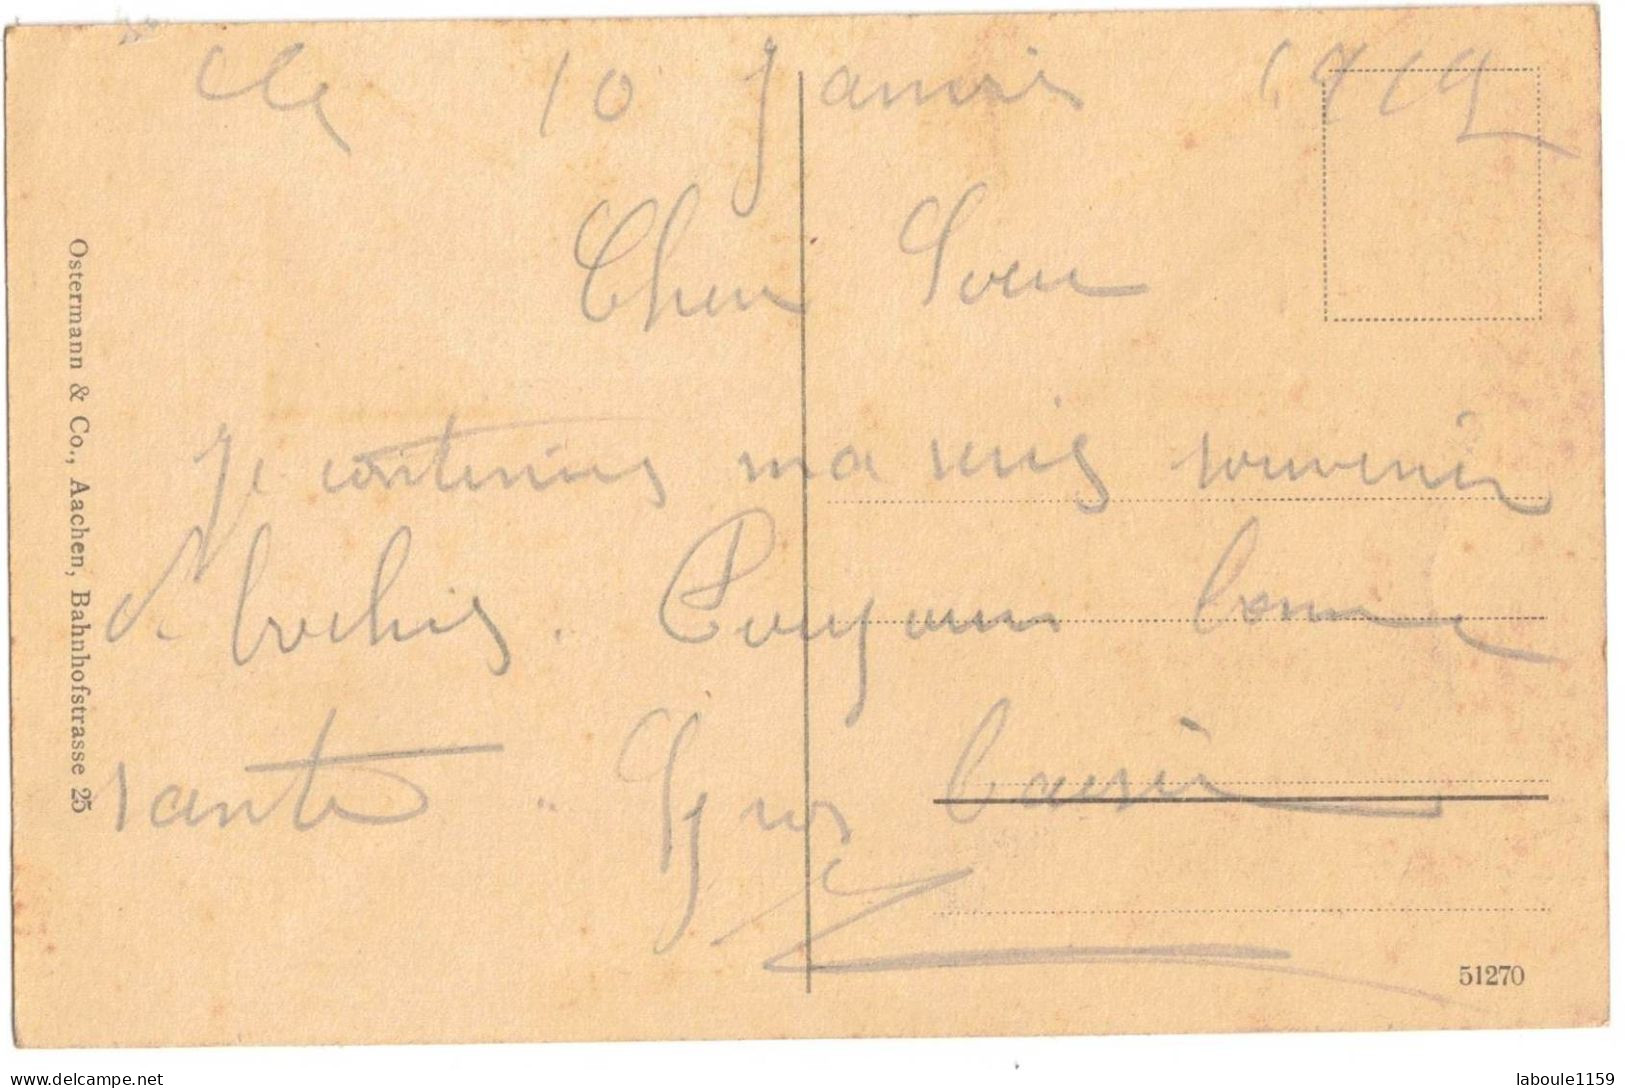 Le 10 Janvier 1919
Cher Soeur
Je continues ma serie souvenir
de bochis. Toujours bonne
sante. Gros baiser
Ostermann & Co., Aachen, Bahnhofstrasse 25
51270
delcampe.net
laboule1159